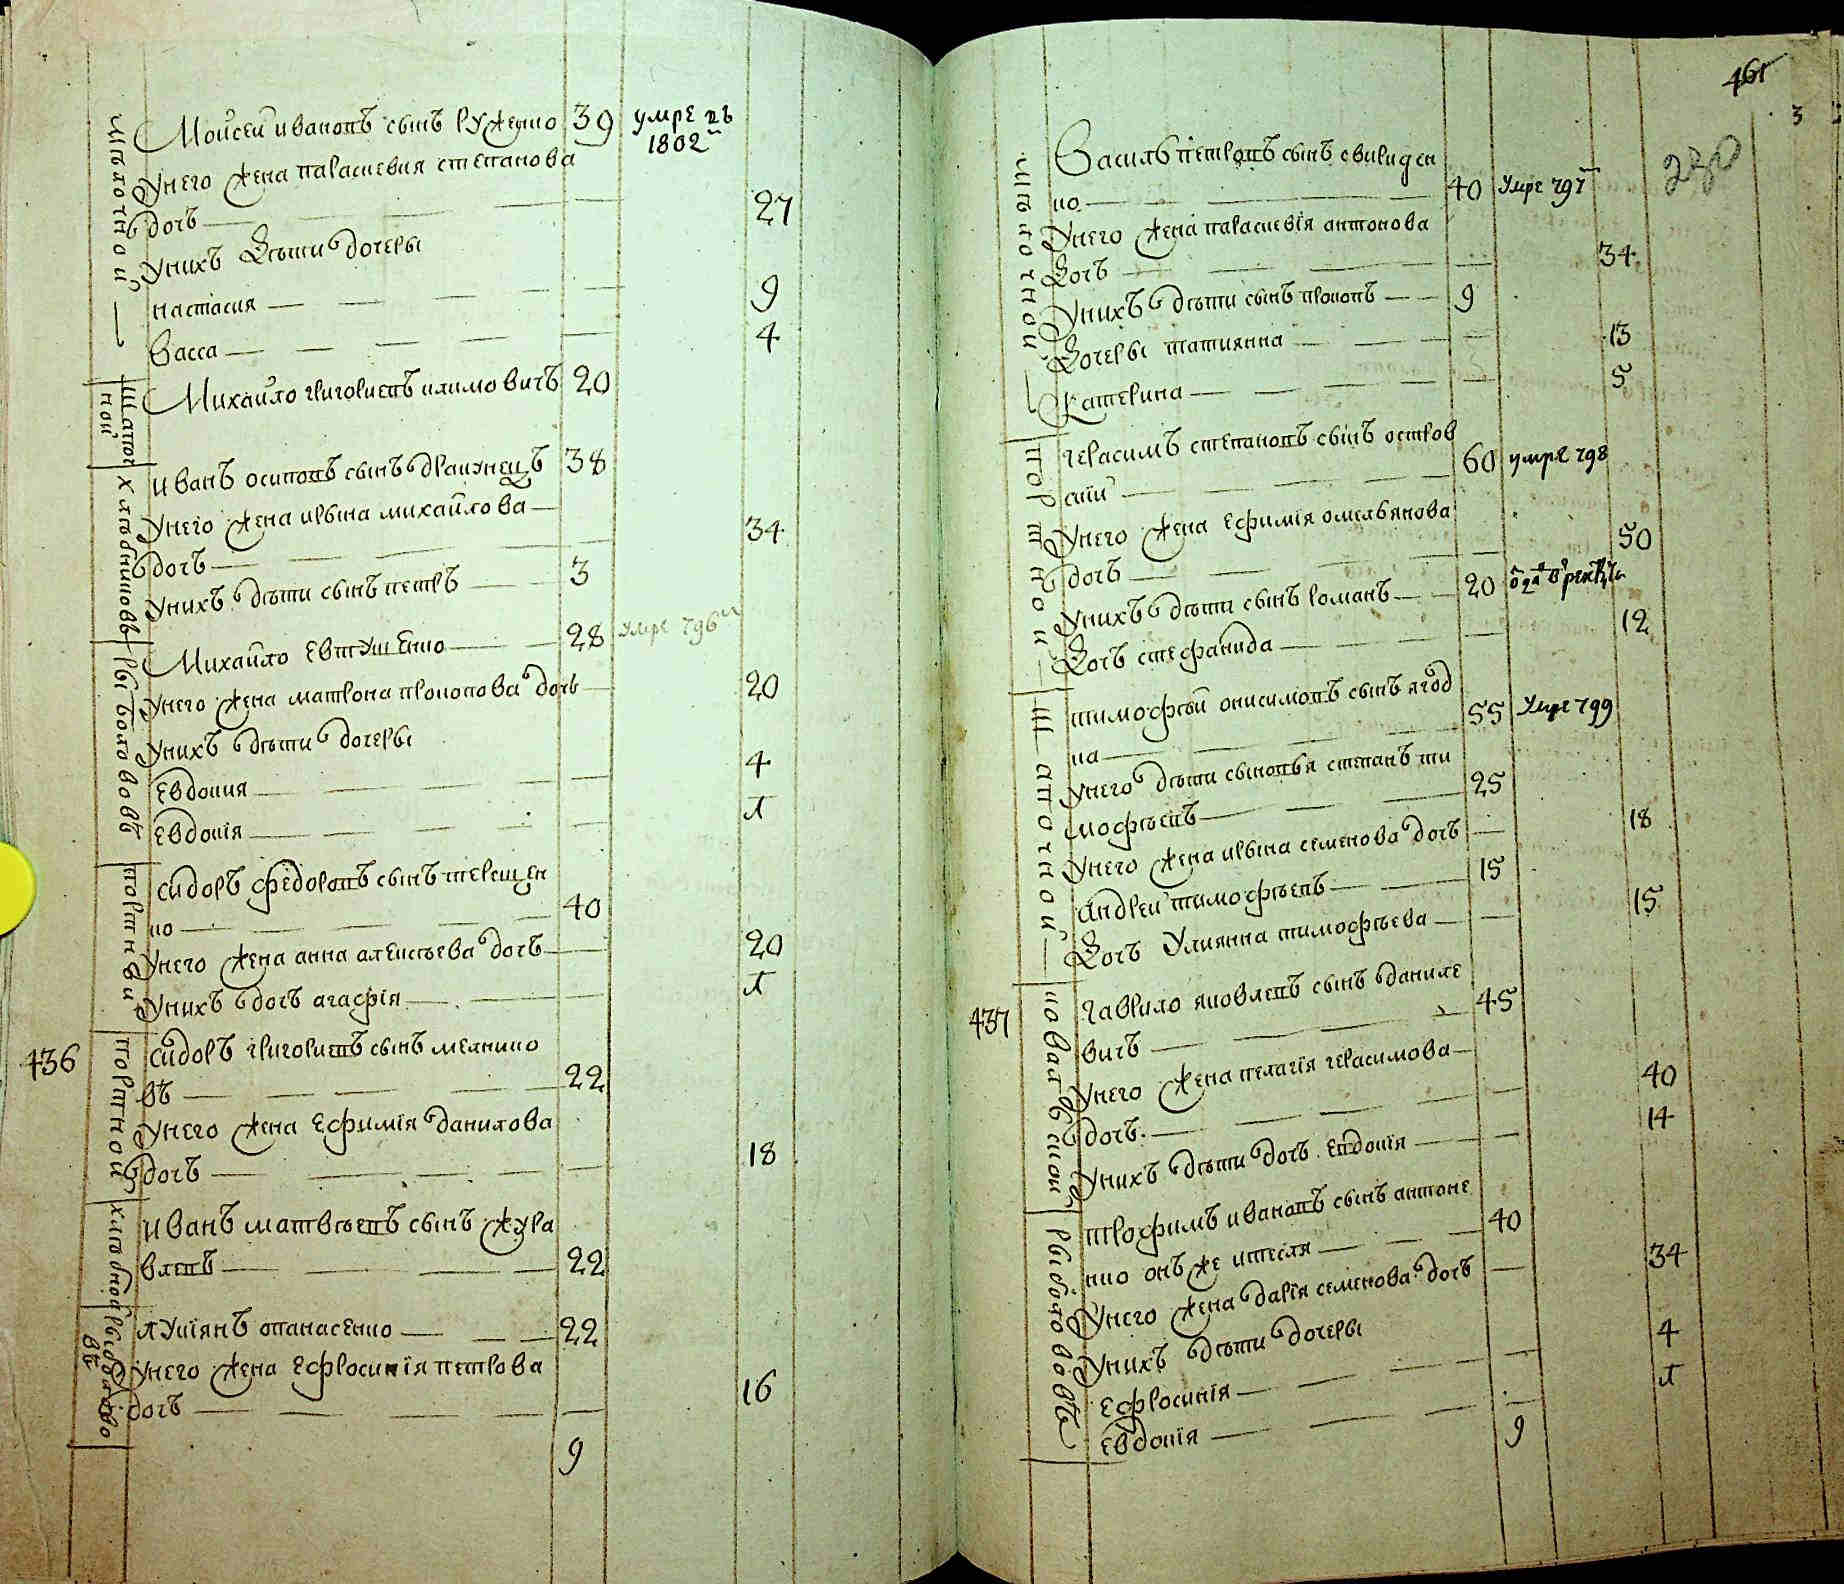 Шапочной
Моисей ивановъ сынъ 39 умре въ
1802
Унего жена параскевия степанова
дочь 27
Унихъ дѣти дочеры
настасия 9
Васса 4
Шапочной
Михайло григориевъ климовичъ 20
хлѣбниковъ
иванъ осиповъ сынъ 38
Унего жена ирына михайлова
дочь 34
Унихъ дѣти сынъ петръ 3
рыболововъ
Михайло Евтушенко 28 умре 796
Унего жена матрона прокопова дочь 20
Унихъ дѣти дочеры
Евдокия 4
Евдокія Л
портнѣй
сидоръ федоровъ сынъ терещен
ко 40
Унего жена анна алексѣева дочь 20
Унихъ дочь агафія Л
436
портной
сидоръ григориевъ сынъ мелнико
въ 22
Унего жена Ефимія данилова
дочь 18
хлѣбной
иванъ матвѣевъ сынъ жура
влевъ 22
рыболово
въ
лукіянъ опанасенко 22
Унего жена Ефросинія петрова
дочь 16
9
461
3
230
Шапочной
Василь петровъ сынъ свириден
ко 40 умре 797
Унего жена параскевія антонова
Дочь 34
Унихъ дѣти сынъ прокопъ 9
Дочеры татиянна 13
Катерина 5
портной
герасимъ степановъ сынъ остров
скій 60 умре 798
Унего жена Ефимія омельянова
дочь 50
Унихъ дѣти сынъ романъ 20
Дочь стефанида 12
Шапочной
тимофѣй онисимовъ сынъ ягод
ка 55 Умре 799
Унего дѣти сыновья степанъ ти
мофѣевъ 25
Унего жена ирына семенова дочь 18
Андрей тимофѣевъ 15
Дочь Улиянна тимофѣева 15
437
ковалѣской
гаврило яковлевъ сынъ даниле
вичъ 45
Унего жена пелагія герасимова
дочь 40
Унихъ дѣти дочь Евдокія 14
рыболововъ
трофимъ ивановъ сынъ антоне
нко онъ же 40
Унего жена дарія семенова дочь 34
Унихъ дѣти дочеры
Ефросинія 4
Евдокія Л
9